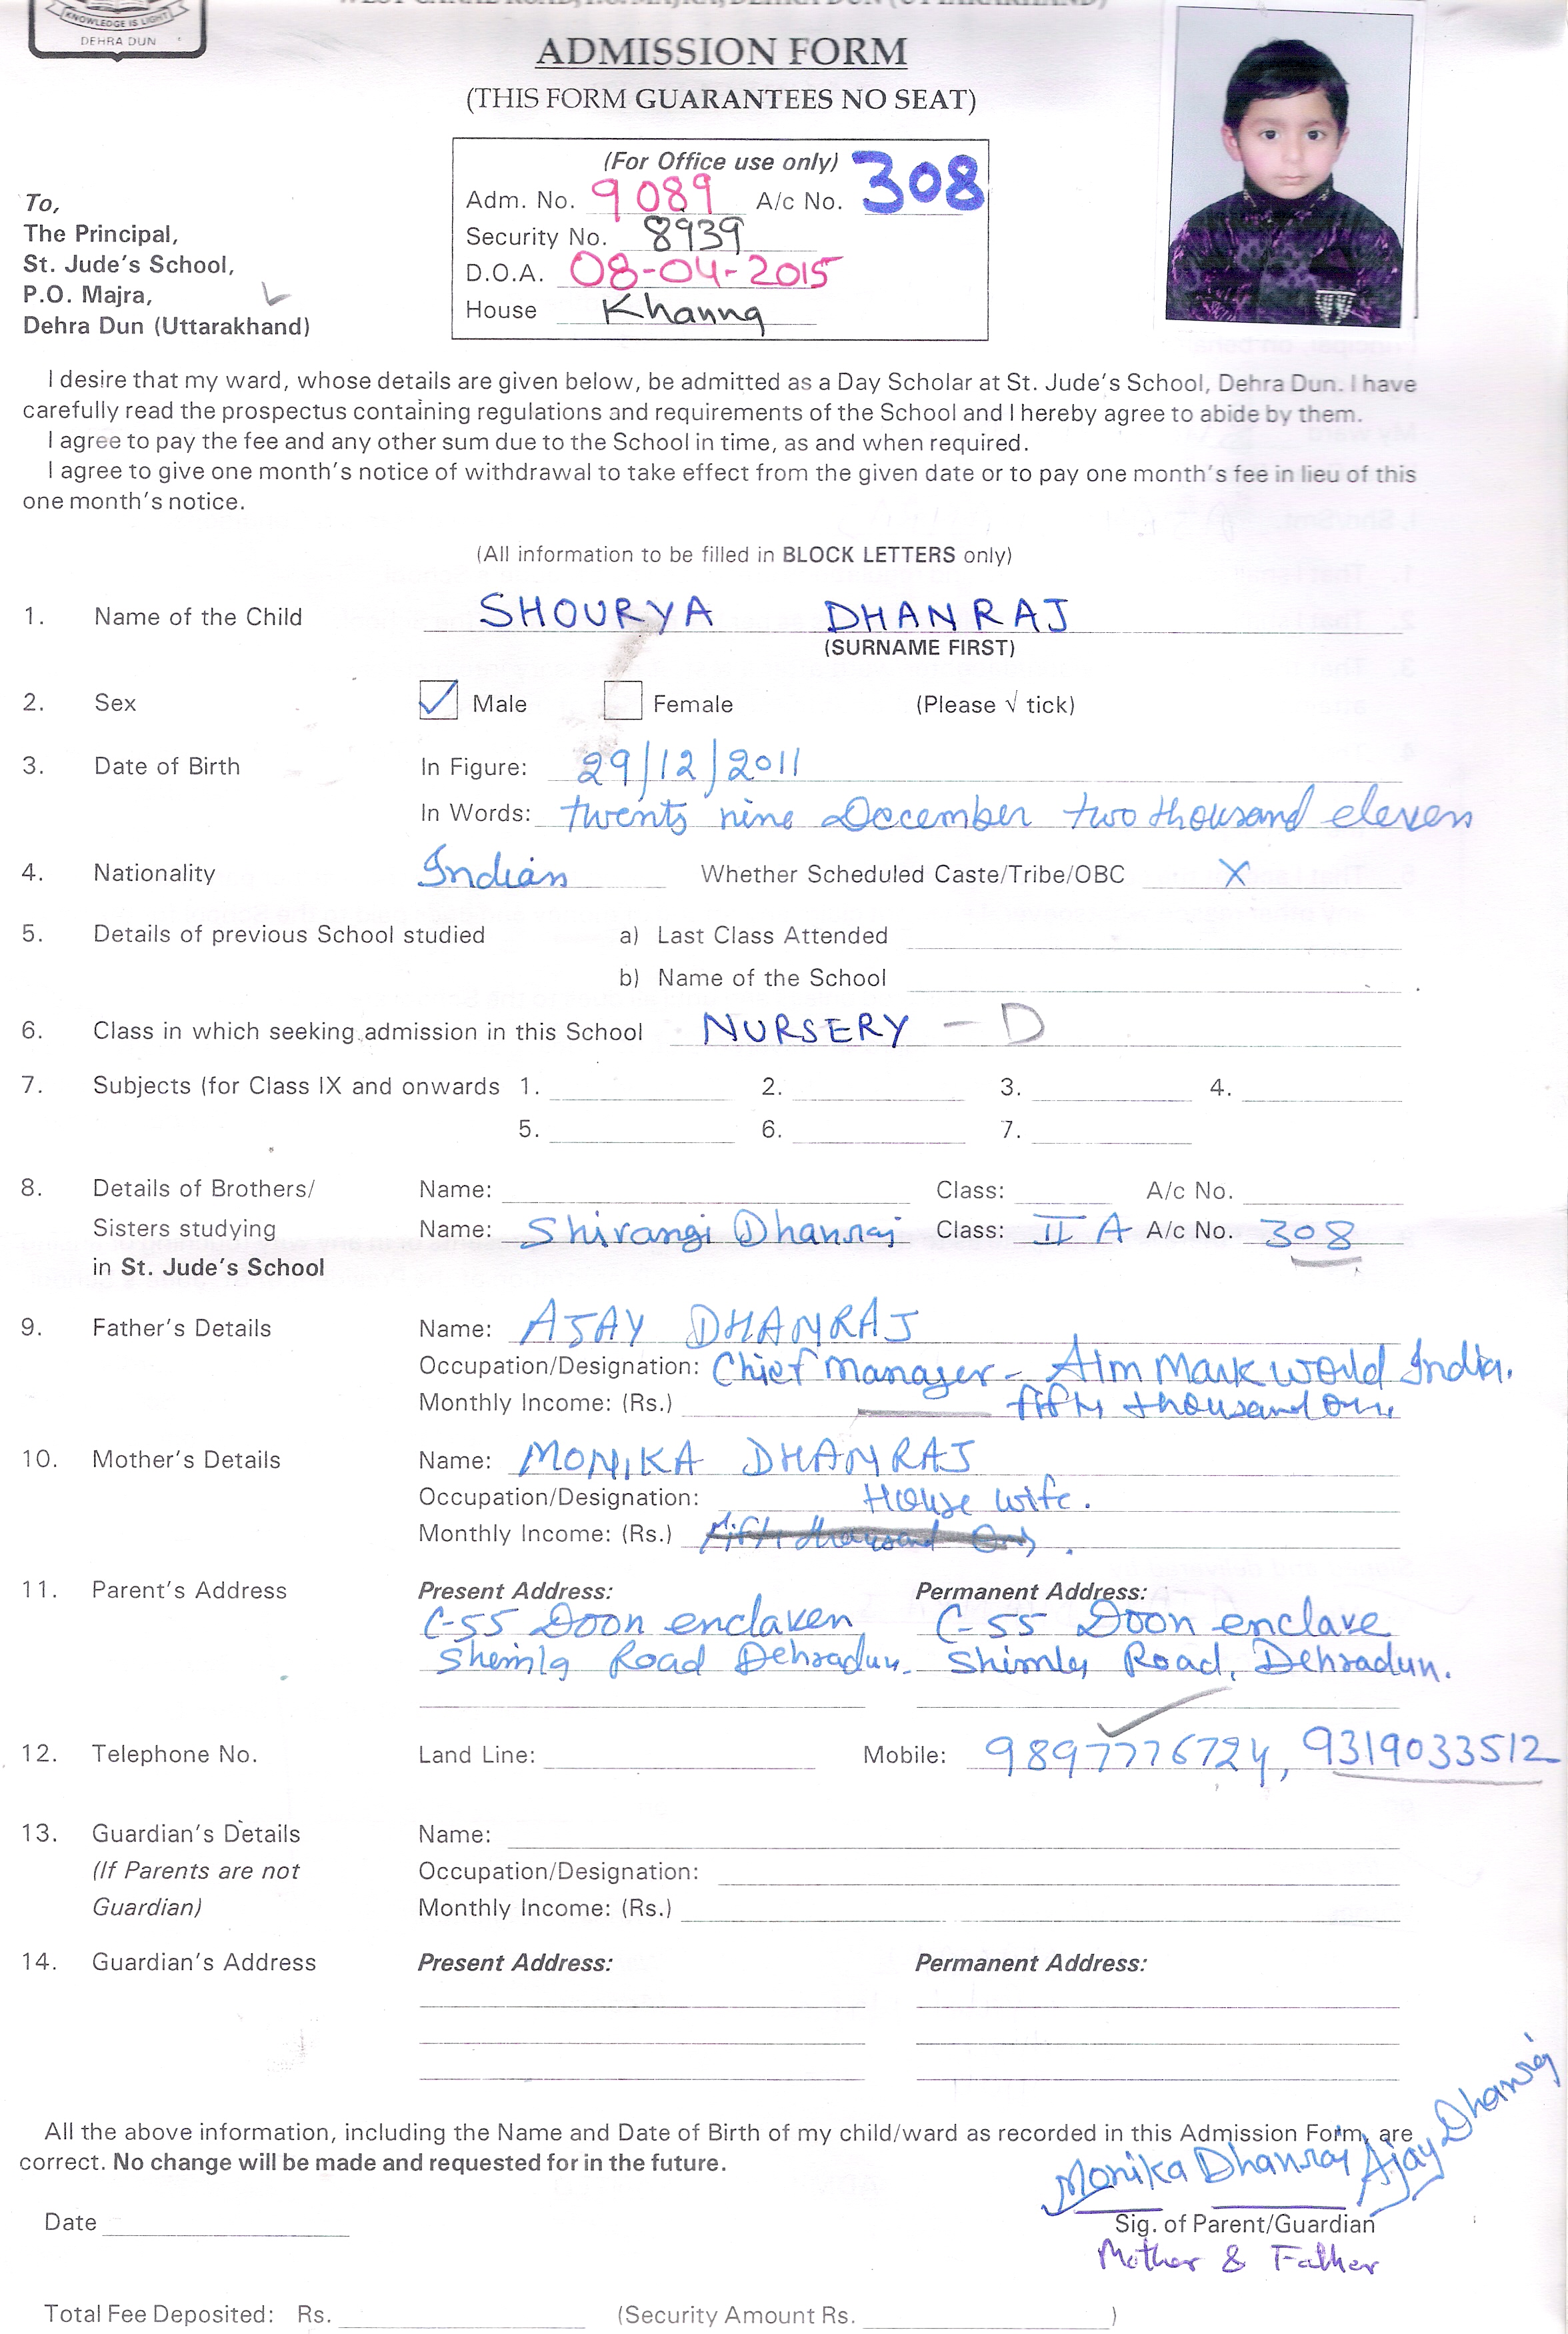 KNOWLEDGE IS LIGHT
DEHRA DUN
ADMISSION FORM
(THIS FORM GUARANTEES NO SEAT)
(For Office use only)
Adm. No. 9089 A/c No. 308
Security No. 8939
D.O.A. 08-04-2015
House Khanna
To,
The Principal,
St. Jude's School,
P.O. Majra,
Dehra Dun (Uttarakhand)
I desire that my ward, whose details are given below, be admitted as a Day Scholar at St. Jude's School, Dehra Dun. I have
carefully read the prospectus containing regulations and requirements of the School and I hereby agree to abide by them.
I agree to pay the fee and any other sum due to the School in time, as and when required.
I agree to give one month's notice of withdrawal to take effect from the given date or to pay one month's fee in lieu of this
one month's notice.
(All information to be filled in BLOCK LETTERS only)
1. Name of the Child SHOURYA DHANRAJ
(SURNAME FIRST)
2. Sex ✓ Male Female (Please √ tick)
3. Date of Birth In Figure: 29/12/2011
In Words: twenty nine December two thousand eleven
4. Nationality Indian Whether Scheduled Caste/Tribe/OBC X
5. Details of previous School studied a) Last Class Attended
b) Name of the School
6. Class in which seeking admission in this School NURSERY - D
7. Subjects (for Class IX and onwards 1. 2. 3. 4.
5. 6. 7.
8. Details of Brothers/ Name: Class: A/c No.
Sisters studying Name: Shivangi Dhanraj Class: II A A/c No. 308
in St. Jude's School
9. Father's Details Name: AJAY DHANRAJ
Occupation/Designation: Chief Manager - Aim Mark World India.
Monthly Income: (Rs.) fifty thousand only
10. Mother's Details Name: MONIKA DHANRAJ
Occupation/Designation: House wife.
Monthly Income: (Rs.)
11. Parent's Address Present Address: Permanent Address:
C-55 Doon enclaven C-55 Doon enclave
Shemla Road Dehradun. Shimla Road, Dehradun.
12. Telephone No. Land Line: Mobile: 9897776724, 9319033512
13. Guardian's Details Name:
(If Parents are not Occupation/Designation:
Guardian) Monthly Income: (Rs.)
14. Guardian's Address Present Address: Permanent Address:
All the above information, including the Name and Date of Birth of my child/ward as recorded in this Admission Form, are
correct. No change will be made and requested for in the future.
Monika Dhanraj Ajay Dhanraj
Date Sig. of Parent/Guardian
Mother & Father
Total Fee Deposited: Rs. (Security Amount Rs. )